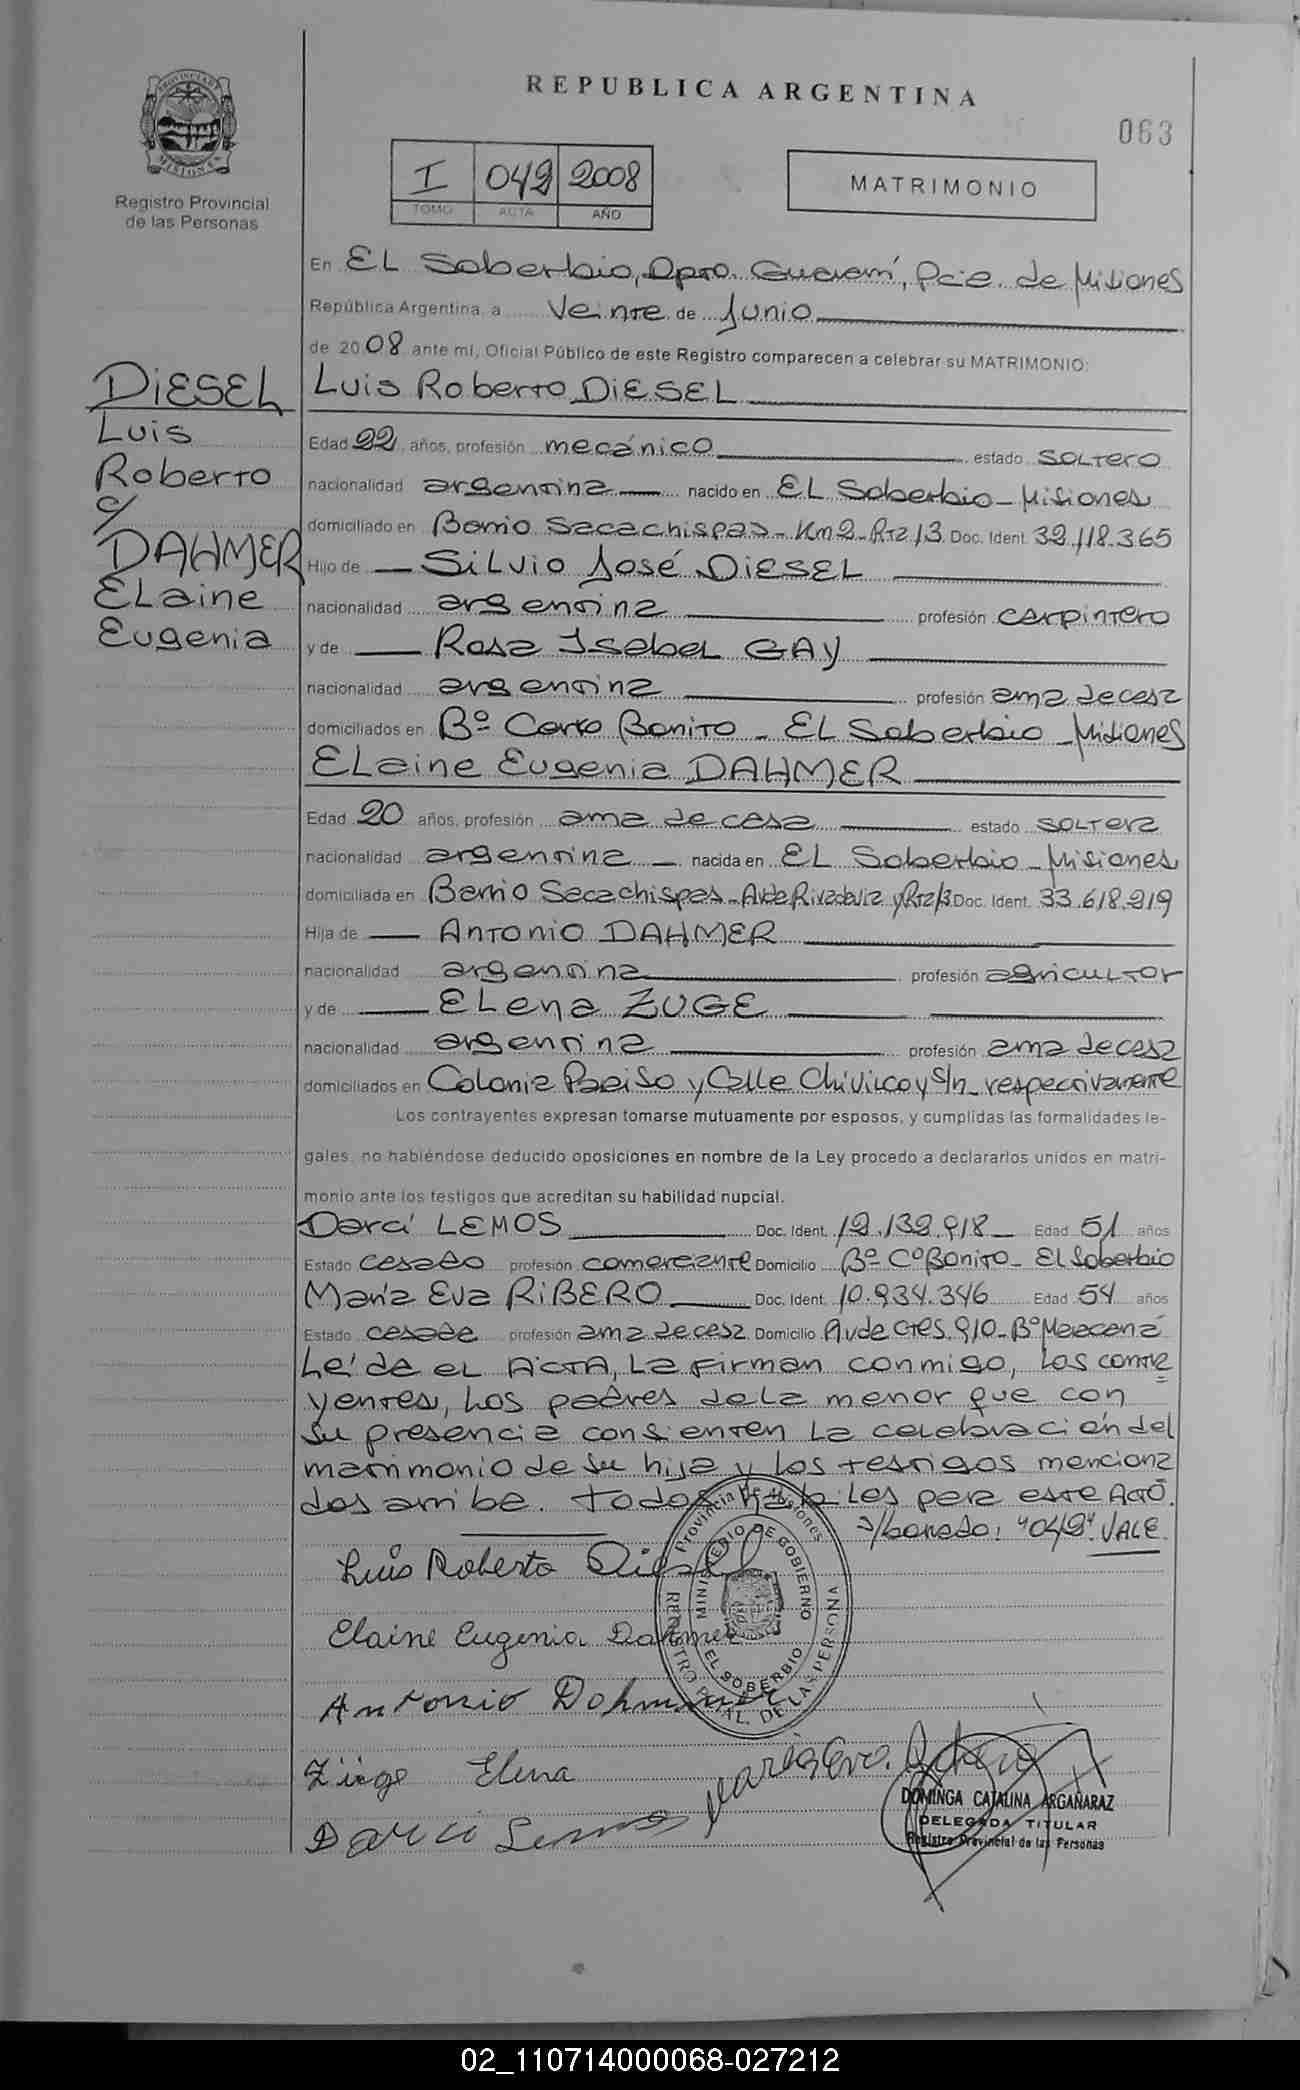 REPUBLICA ARGENTINA
063
PROVINCIA DE MISIONES
Registro Provincial
de las Personas
I 042 2008
TOMO ACTA AÑO
MATRIMONIO
En EL Soberbio, Dpto. Guaraní, Pcia. de Misiones
República Argentina, a veinte de junio
de 2008 ante mí, Oficial Público de este Registro comparecen a celebrar su MATRIMONIO:
DIESEL
Luis
Roberto
c/
DAHMER
ELaine
Eugenia
Luis Roberto DIESEL
Edad 22 años, profesión mecánico estado soltero
nacionalidad argentina nacido en EL Soberbio - Misiones
domiciliado en Barrio Sacachispas - Km2 - Rta 13 Doc. Ident. 32.118.365
Hijo de Silvio José DIESEL
nacionalidad argentina profesión carpintero
y de Rosa Isabel GAY
nacionalidad argentina profesión ama de casa
domiciliados en Bº Cerro Bonito - EL Soberbio - Misiones
ELaine Eugenia DAHMER
Edad 20 años, profesión ama de casa estado soltera
nacionalidad argentina nacida en EL Soberbio - Misiones
domiciliada en Barrio Sacachispas - Avda Rivadavia y Rta 13 Doc. Ident. 33.618.219
Hija de Antonio DAHMER
nacionalidad argentina profesión agricultor
y de ELena ZUGE
nacionalidad argentina profesión ama de casa
domiciliados en Colonia Paraiso y Calle Chivilcoy s/n - respectivamente
Los contrayentes expresan tomarse mutuamente por esposos, y cumplidas las formalidades le-
gales, no habiéndose deducido oposiciones en nombre de la Ley procedo a declararlos unidos en matri-
monio ante los testigos que acreditan su habilidad nupcial.
Darcí LEMOS Doc. Ident. 12.132.918 Edad 51 años
Estado casado profesión comerciante Domicilio Bº Cº Bonito - EL Soberbio
María Eva RIBERO Doc. Ident. 10.934.346 Edad 54 años
Estado casada profesión ama de casa Domicilio Avda Ctes. 910 - Bº
Leída el ACTA, la firman conmigo, los contra
yentes, los padres de la menor que con
su presencia consienten la celebración del
matrimonio de su hija y los testigos menciona
dos arriba. Todos hábiles para este acto.
"042" VALE.
Luis Roberto Diesel
Elaine Eugenia Dahmer
Antonio Dahmer
Züge Elena
Maria Eva Ribero
Darci Lemos
Provincia de Misiones
MINISTERIO DE GOBIERNO
EL SOBERBIO
REGISTRO PCIAL. DE LAS PERSONAS
DOMINGA CATALINA ARGAÑARAZ
DELEGADA TITULAR
Registro Provincial de las Personas
02_110714000068-027212